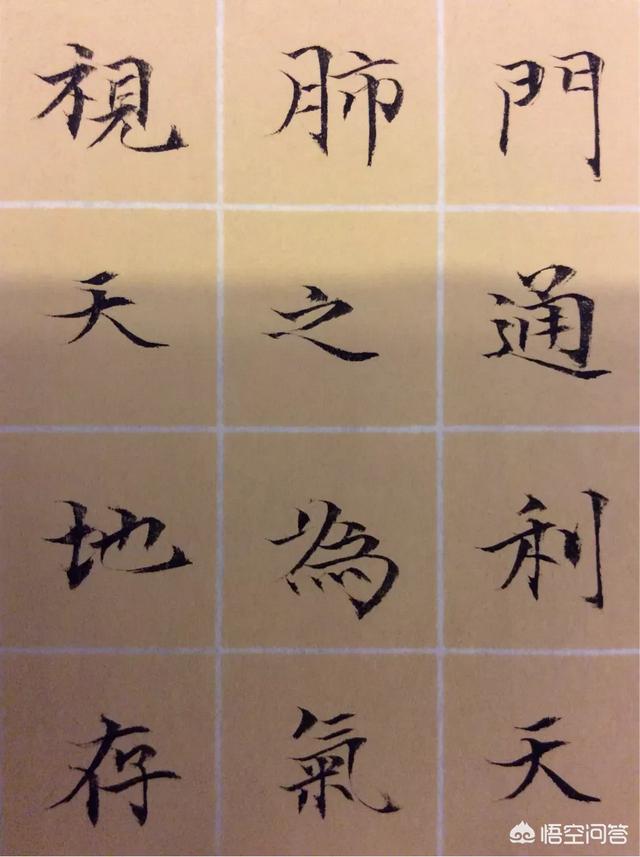 門通利天
肺之為氣
視天地存
悟空问答